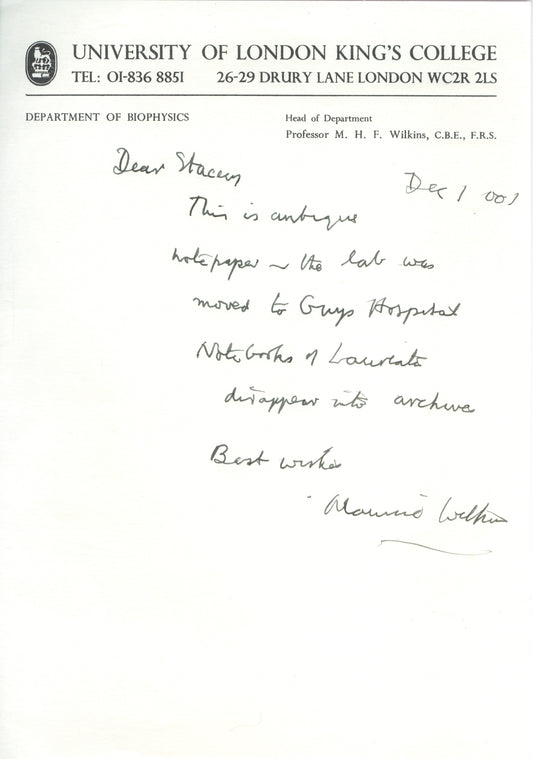 UNIVERSITY OF LONDON KING'S COLLEGE
TEL: 01-836 8851 26-29 DRURY LANE LONDON WC2R 2LS
DEPARTMENT OF BIOPHYSICS
Head of Department
Professor M. H. F. Wilkins, C.B.E., F.R.S.
Dear Stacey
Dec 1
This is antique
notepaper ~ the lab was
moved to Guys Hospital
Notebooks of Laureate
disappear into archive
Best wishes
Maurice Wilkins